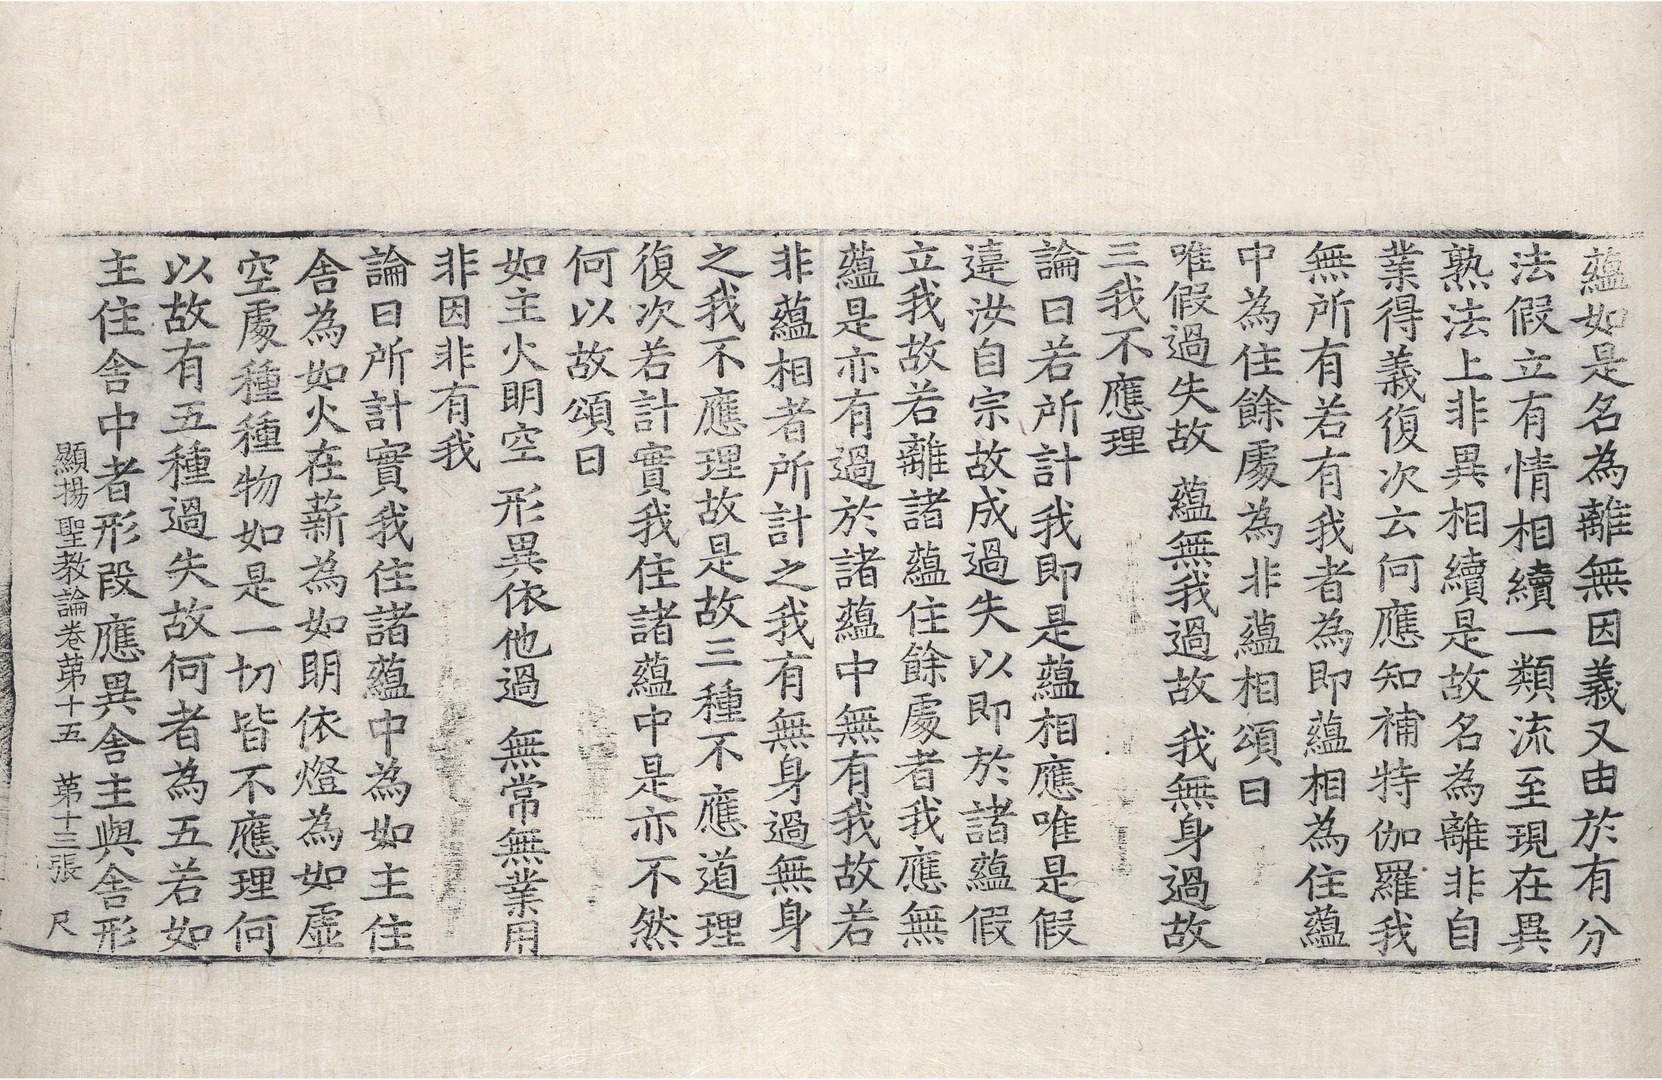 蘊如是名為離無因義又由於有分
法假立有情相續一類流至現在異
熟法上非異相續是故名為離非自
業得義復次云何應知補特伽羅我
無所有若有我者為即蘊相為住蘊
中為住餘處為非蘊相頌曰
唯假過失故 蘊無我過故 我無身過故
三我不應理
論曰若所計我即是蘊相應唯是假
違汝自宗故成過失以即於諸蘊假
立我故若離諸蘊住餘處者我應無
蘊是亦有過於諸蘊中無有我故若
非蘊相者所計之我有無身過無身
之我不應理故是故三種不應道理
復次若計實我住諸蘊中是亦不然
何以故頌曰
如主火明空 形異依他過 無常無業用
非因非有我
論曰所計實我住諸蘊中為如主住
舍為如火在薪為如明依燈為如虛
空處種種物如是一切皆不應理何
以故有五種過失故何者為五若如
主住舍中者形段應異舍主與舍形
顯揚聖教論卷第十五 第十三張 尺